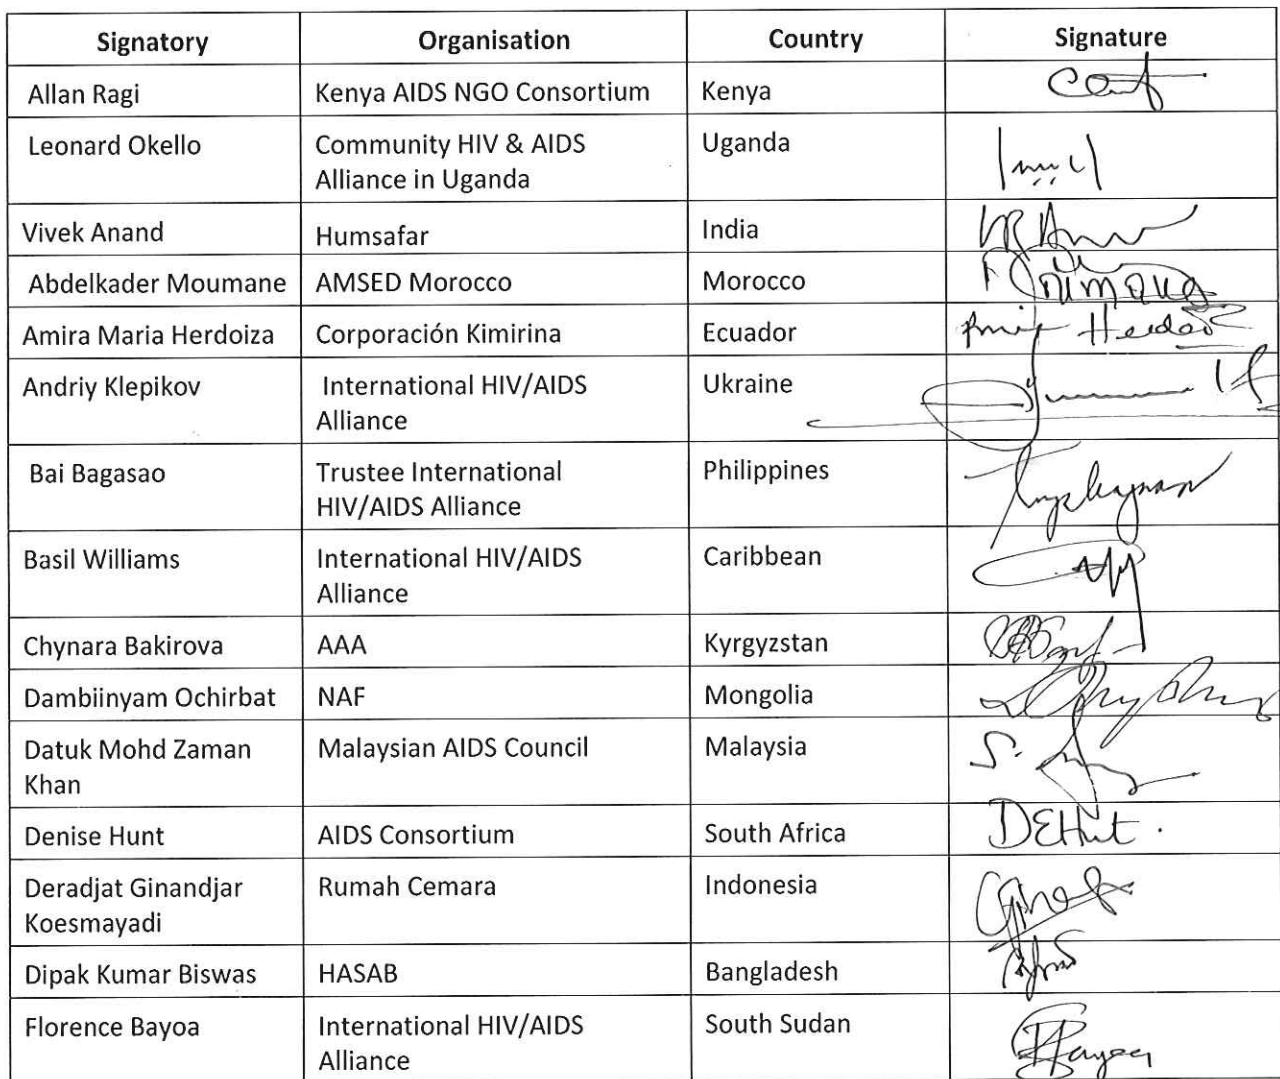 Signatory Organisation Country Signature
Allan Ragi Kenya AIDS NGO Consortium Kenya
Leonard Okello Community HIV & AIDS Uganda
Alliance in Uganda
Vivek Anand Humsafar India
Abdelkader Moumane AMSED Morocco Morocco
Amira Maria Herdoiza Corporación Kimirina Ecuador
Andriy Klepikov International HIV/AIDS Ukraine
Alliance
Bai Bagasao Trustee International Philippines
HIV/AIDS Alliance
Basil Williams International HIV/AIDS Caribbean
Alliance
Chynara Bakirova AAA Kyrgyzstan
Dambiinyam Ochirbat NAF Mongolia
Datuk Mohd Zaman Malaysian AIDS Council Malaysia
Khan
Denise Hunt AIDS Consortium South Africa DEHunt.
Deradjat Ginandjar Rumah Cemara Indonesia
Koesmayadi
Dipak Kumar Biswas HASAB Bangladesh
Florence Bayoa International HIV/AIDS South Sudan
Alliance